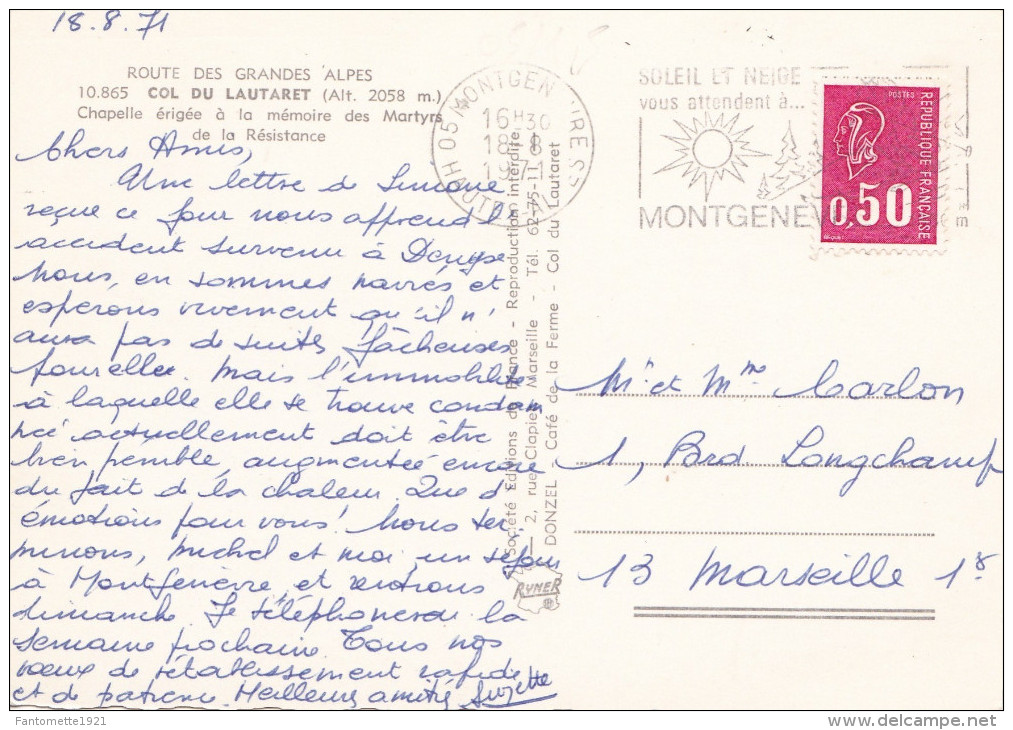 18.8.71
ROUTE DES GRANDES ALPES
10.865 COL DU LAUTARET (Alt. 2058 m.)
Chapelle érigée à la mémoire des Martyrs
de la Résistance
Chers Amis,
Une lettre de Simone
reçue ce jour nous apprend l'
accident survenu à Denyse
Nous, en sommes navrés et
espérons vivement qu'il n'
aura pas de suites fâcheuses
pour elle. Mais l'immobilité
à laquelle elle se trouve condam
née actuellement doit être
bien pénible, augmentée encore
du fait de la chaleur. Que d'
émotions pour vous! Nous ter-
minons, Michel et moi, un séjour
à Montgenèvre, et rentrons
dimanche. Je téléphonerai la
semaine prochaine. Tous nos
vœux de rétablissement rapide
et de patience. Meilleures amitiés Suzette
Société Editions de France - Reproduction interdite
2, rue Clapier, Marseille - Tél. 62-75-11
DONZEL - Café de la Ferme - Col du Lautaret
RYNER
05 MONTGENÈVRE
16H30
18-8
1971
HAUTES
SOLEIL ET NEIGE
vous attendent à...
MONTGENEV
POSTES
REPUBLIQUE FRANÇAISE
0,50
Mr. et Mme Carlon
1, Bard. Longchamp
13 Marseille 1er
Fantomette1921
delcampe.net